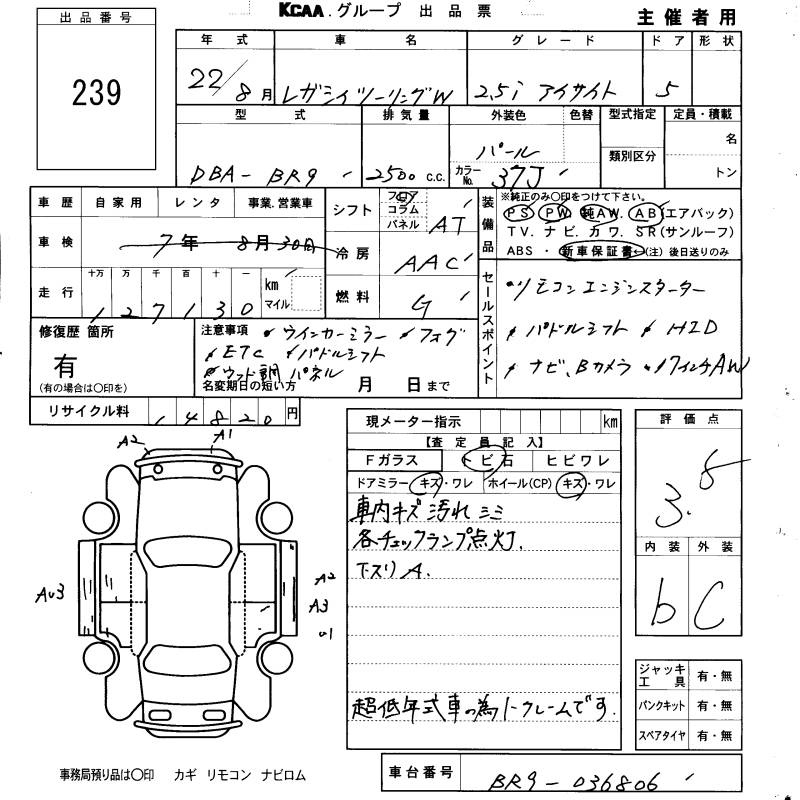 KCAA.グループ 出品票
主催者用
出品番号
239
年式 車名 グレード ドア 形状
22/8月 レガシィツーリングW 2.5i アイサイト 5
型式 排気量 外装色 色替 型式指定 定員・積載
DBA-BR9 2500 c.c. パール 名
類別区分
カラーNo. 37J トン
車歴 自家用 レンタ 事業.営業車
シフト フロア コラム パネル AT
装備品 ※純正のみ〇印をつけて下さい。
PS PW 純AW. AB(エアバック)
TV. ナビ. カワ. SR(サンルーフ)
ABS・新車保証書←(注)後日送りのみ
車検 7年 8月30日
冷房 AAC
走行 十万 万 千 百 十 一 km マイル
127130
燃料 G
セールスポイント
リモコンエンジンスターター
パドルシフト HID
ナビ、Bカメラ 17インチAW
修復歴 箇所
有
(有の場合は〇印を)
注意事項 ウインカーミラー フォグ
ETC パドルシフト
ウッド調パネル
名変期日の短い方 月 日まで
リサイクル料 14820円
現メーター指示 km
【査定員記入】
Fガラス トビ石 ヒビワレ
ドアミラー キズ・ワレ ホイール(CP) キズ・ワレ
車内キズ汚れシミ
各チェックランプ点灯.
下スリ A.
超低年式車の為ノークレームです.
評価点
3.5
内装 外装
b C
A2 A1
AU3
A2
A3
U1
ジャッキ工具 有・無
パンクキット 有・無
スペアタイヤ 有・無
事務局預り品は〇印 カギ リモコン ナビロム
車台番号 BR9-036806